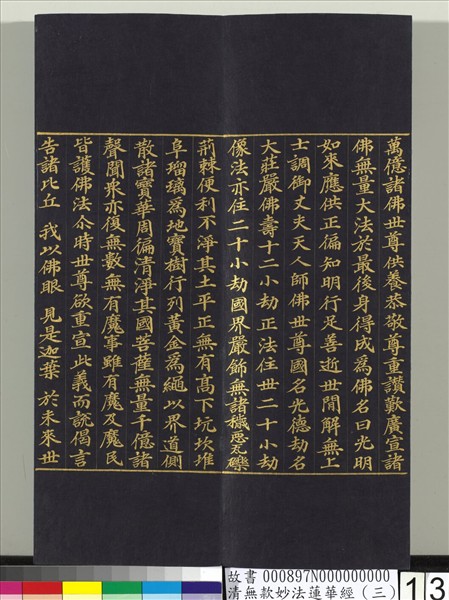 萬億諸佛世尊供養恭敬尊重讚歎廣宣諸
佛無量大法於最後身得成為佛名曰光明
如來應供正徧知明行足善逝世間解無上
士調御丈夫天人師佛世尊國名光德劫名
大莊嚴佛壽十二小劫正法住世二十小劫
像法亦住二十小劫國界嚴飾無諸穢惡瓦礫
荊棘便利不淨其土平正無有髙下坑坎堆
阜瑠璃為地寶樹行列黃金為繩以界道側
散諸寶華周徧清淨其國菩薩無量千億諸
聲聞衆亦復無數無有魔事雖有魔及魔民
皆護佛法尒時世尊欲重宣此義而說偈言
告諸比丘 我以佛眼 見是迦葉 於未來世
故書 000897N000000000
清無款妙法蓮華經（三）
13